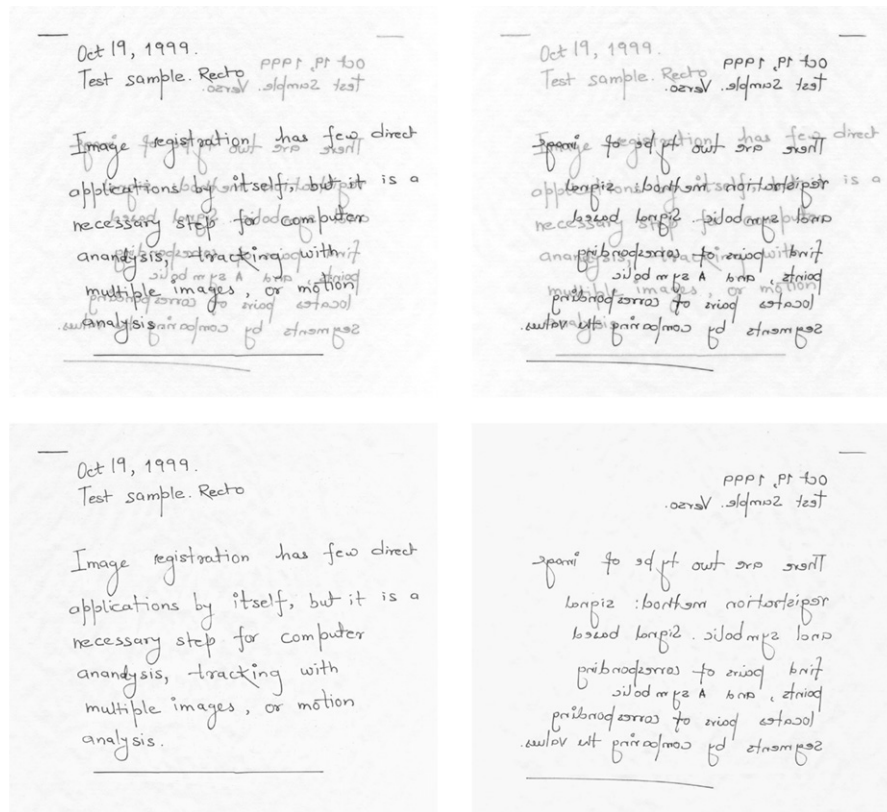 Oct 19, 1999.
Test sample. Recto
Image registration has few direct
applications by itself, but it is a
necessary step for computer
anandysis, tracking with
multiple images, or motion
analysis.
Oct 19, 1999
Test Sample. Verso.
There are two type of image
registartion method: signal
and symbolic. Signal based
find pairs of corresponding
points, and A symbolic
locates pairs of corresponding
segments by comparing the values.
Oct 19, 1999.
Test sample. Recto
Image registration has few direct
applications by itself, but it is a
necessary step for computer
anandysis, tracking with
multiple images, or motion
analysis.
Oct 19, 1999
Test Sample. Verso.
There are two type of image
registartion method: signal
and symbolic. Signal based
find pairs of corresponding
points, and A symbolic
locates pairs of corresponding
segments by comparing the values.